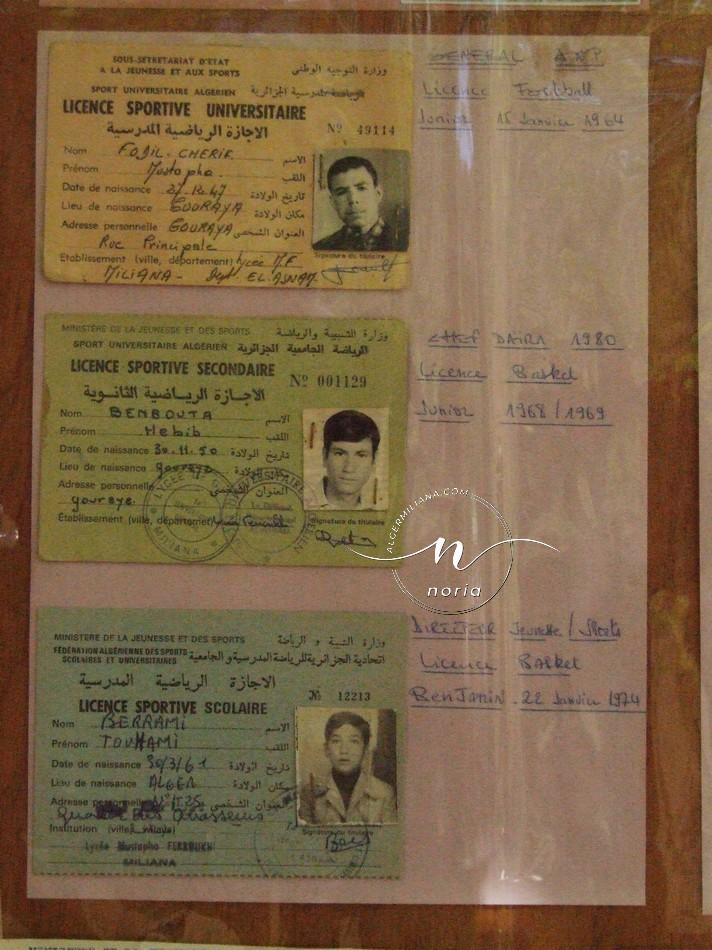 SOUS-SECRETARIAT D'ETAT
A LA JEUNESSE ET AUX SPORTS
وزارة التوجيه الوطني
SPORT UNIVERSITAIRE ALGERIEN الرياضة المدرسية الجزائرية
LICENCE SPORTIVE UNIVERSITAIRE
الاجازة الرياضية المدرسية
Nº 49114
Nom FODIL-CHERIF الاسم
Prénom Mostapha اللقب
Date de naissance 27.12.47 تاريخ الولادة
Lieu de naissance GOURAYA مكان الولادة
Adresse personnelle GOURAYA العنوان الشخصي
Rue Principale
Signature du titulaire
Etablissement (ville, département) Lycée M.F
MILIANA - Dept EL.ASNAM
GENERAL ANP
Licence Football
Junior 15 Janvier 1964
MINISTÈRE DE LA JEUNESSE ET DES SPORTS وزارة الشبيبة والرياضة
SPORT UNIVERSITAIRE ALGÉRIEN الرياضة الجامعية الجزائرية
LICENCE SPORTIVE SECONDAIRE
Nº 001129
الاجازة الرياضية الثانوية
Nom BENBOUTA الاسم
Prénom Hebib اللقب
Date de naissance 30.11.50 تاريخ الولادة
Lieu de naissance gouraya الولادة
Adresse personnelle العنوان الشخصي
gouraya
Établissement (ville, département)
Signature du titulaire
LYCÉE
MILIANA
CHEF DAIRA 1980
Licence Basket
Junior 1968/1969
ALGERMILIANA.COM
n
noria
MINISTERE DE LA JEUNESSE ET DES SPORTS وزارة الشبيبة و الرياضة
FÉDÉRATION ALGÉRIENNE DES SPORTS
SCOLAIRES ET UNIVERSITAIRES
اتحادية الجزائرية للرياضة المدرسية و الجامعية
الاجازة الرياضية المدرسية
LICENCE SPORTIVE SCOLAIRE
Nº 12213
Nom BERRAMI الاسم
Prénom TOUHAMI اللقب
Date de naissance 30/3/61 تاريخ الولادة
Lieu de naissance ALGER مكان الولادة
Adresse personnelle N° 125 العنوان الشخصي
Institution (ville)
Signature du titulaire
Lycée Mustapha FERROUKHI
MILIANA
DIRECTEUR Jeunesse / Sports
Licence BASKET
BenJamin - 22 Janvier 1974